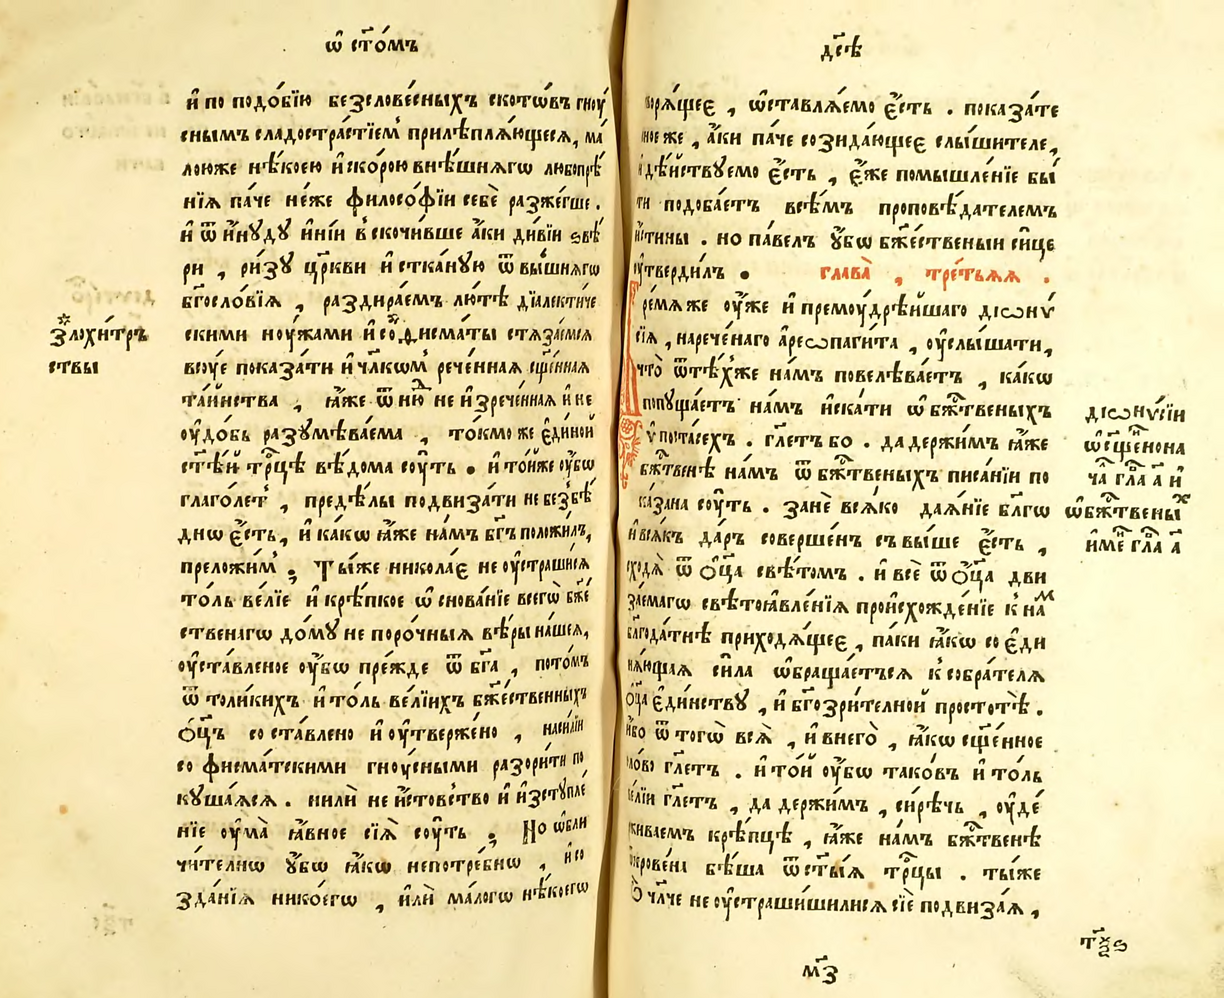 ѡ҆ ст҃о́мъ
и҆ по подо́бїю безслове́сныхъ скотѡ́въ гноу́
снымъ сладостра́стїемъ прилѣплѧ́ющесѧ, ма́
лоюже нѣ́коею и҆ ско́рою внѣ́шнѧгѡ любопрѣ́
нїѧ па́че не́же филосо́фїи себѐ разже́гше.
и҆ ѿ и҆́нꙋдꙋ и҆ні́и в̾скочивше а҆́ки ди́вїи ѕвѣ́
ри , ри́зꙋ цр҃кви и҆ стка́нꙋю ѿ вы́шнѧгѡ
бг҃осло́вїѧ , раздира́емъ лю́тѣ дїале́ктиче
скими ноу́жами и҆ со́фисма́ты стѧза́емсѧ
всоу́е показа́ти и҆ чл҃комъ рече́ннаѧ сщ҃е́ннаѧ
та́инства , ꙗ҆́же ѿ ню́д не и҆зрече́ннаѧ и҆ не
оу҆до́бь разꙋмѣва́ема , то́кмо же є҆ди́ной
ст҃ѣ́й трⷪ҇цѣ вѣ́дома соу́ть . и҆ то́йже оу҆́бѡ
глаго́летъ , предѣ́лы подвиза́ти не безбѣ́
днѡ є҆́сть, и҆ ка́кѡ ꙗ҆́же на́мъ бг҃ъ положи́лъ,
прело́жимъ ; Ты́же никола́є не оу҆страши́сѧ
то́ль ве́лїе и҆ крѣ́пкое ѡ҆снова́нїе всегѡ̀ бж҃е
ственагѡ до́мꙋ не поро́чныѧ вѣ́ры на́шеѧ,
оу҆ста́вленое оу҆́бѡ пре́жде ѿ бг҃а , пото́мъ
ѿ толи́кихъ и҆ то́ль ве́лїихъ бж҃е́ственныхъ
ѻ҆ц҃ъ соста́влено и҆ оу҆тверже́но , наси́лїи
софисма́тскими гноу́сными разори́ти по
кꙋша́ѧсѧ . нилѝ не и҆́стовство и҆ и҆зстꙋпле́
нїе оу҆ма̀ ꙗ҆́вное сїѧ̀ соу́ть ; Но ѡ҆бли
чи́телнѡ оу҆́бѡ ꙗ҆́кѡ непотре́бнѡ , и҆ со
зда́нїѧ нико́егѡ , и҆лѝ ма́лагѡ нѣ́коегѡ
ѕлохи́тръ
ствы
дс҃ѣ
ворѧ́щеє , ѡ҆ставлѧ́емо є҆́сть . показа́те
лное же , а҆́ки па́че созида́ющеє слы́шителе,
и҆ дѣ́йствꙋемо є҆́сть , є҆́же помышле́нїе бы́
ти подоба́етъ всѣ́мъ проповѣ́дателемъ
и҆́стины . но па́велъ оу҆́бѡ бж҃е́ственыи си́це
оу҆тверди́лъ . глава̀ , тре́тьѧѧ .
Времѧ же оу҆́же и҆ премоу́дрѣйшаго діѡнѵ́
сїѧ , нарече́наго а҆реѡпаги́та , оу҆слы́шати,
что̀ ѿ тѣ́хже на́мъ повелѣва́етъ , ка́кѡ
попꙋща́етъ на́мъ и҆ска́ти ѡ҆ бжⷭ҇твеныхъ
ѵ҆поста́сехъ . гл҃етъ бо . да держи́мъ ꙗ҆́же
бжⷭ҇твенѣ на́мъ ѿ бжⷭ҇твеныхъ писа́нїи по
ка́зана соу́ть . занѐ всѧ́ко даѧ́нїе бл҃гѡ
и҆ всѧ́къ да́ръ соверше́нъ съвы́ше є҆́сть ,
сходѧ̀ ѿ ѻ҆ц҃а свѣ́томъ . и҆ всѐ ѿ ѻ҆ц҃а дви
за́емагѡ свѣтоꙗвле́нїѧ происхожде́нїе к̾ на́м
благода́тнѣ приходѧ́щеє , па́ки ꙗ҆́кѡ со є҆ди
нѧ́ющаѧ си́ла ѡ҆браща́етсѧ к̾ собра́телѧ
ѻ҆ц҃а є҆ди́нствꙋ , и҆ бг҃озри́телной простотѣ̀ .
и҆́бо ѿ тогѡ̀ всѧ̀ , и҆ в̾него̀ , ꙗ҆́кѡ сщ҃е́нное
сло́во гл҃етъ . и҆ то́й оу҆́бѡ тако́въ и҆ то́ль
ве́лїи гл҃етъ , да держи́мъ , си́рѣчь , оу҆де́
рживаемъ крѣ́пцѣ , ꙗ҆́же на́мъ бжⷭ҇твенѣ
ѿкрове́на бѣ́ша ѿ ст҃ы́ѧ трⷪ҇цы . ты́же
ѽ чл҃че не оу҆страши́шилисѧ сїѐ подвиза́ѧ ,
діѡнѵ́сїи
ѡ҆ сщ҃еннона
ча́ гла҃ а҃ и҆
ѡ҆ бжⷭ҇твены́х
и҆ме́н гла҃ а҃
м҃з
тѯ҃ѕ